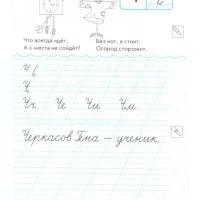 Что всегда идёт,
А с места не сойдёт?
Без ног, а стоит,
Огород сторожит.
Ч
Чч Че Чи Чм
Черкасов Гена — ученик.